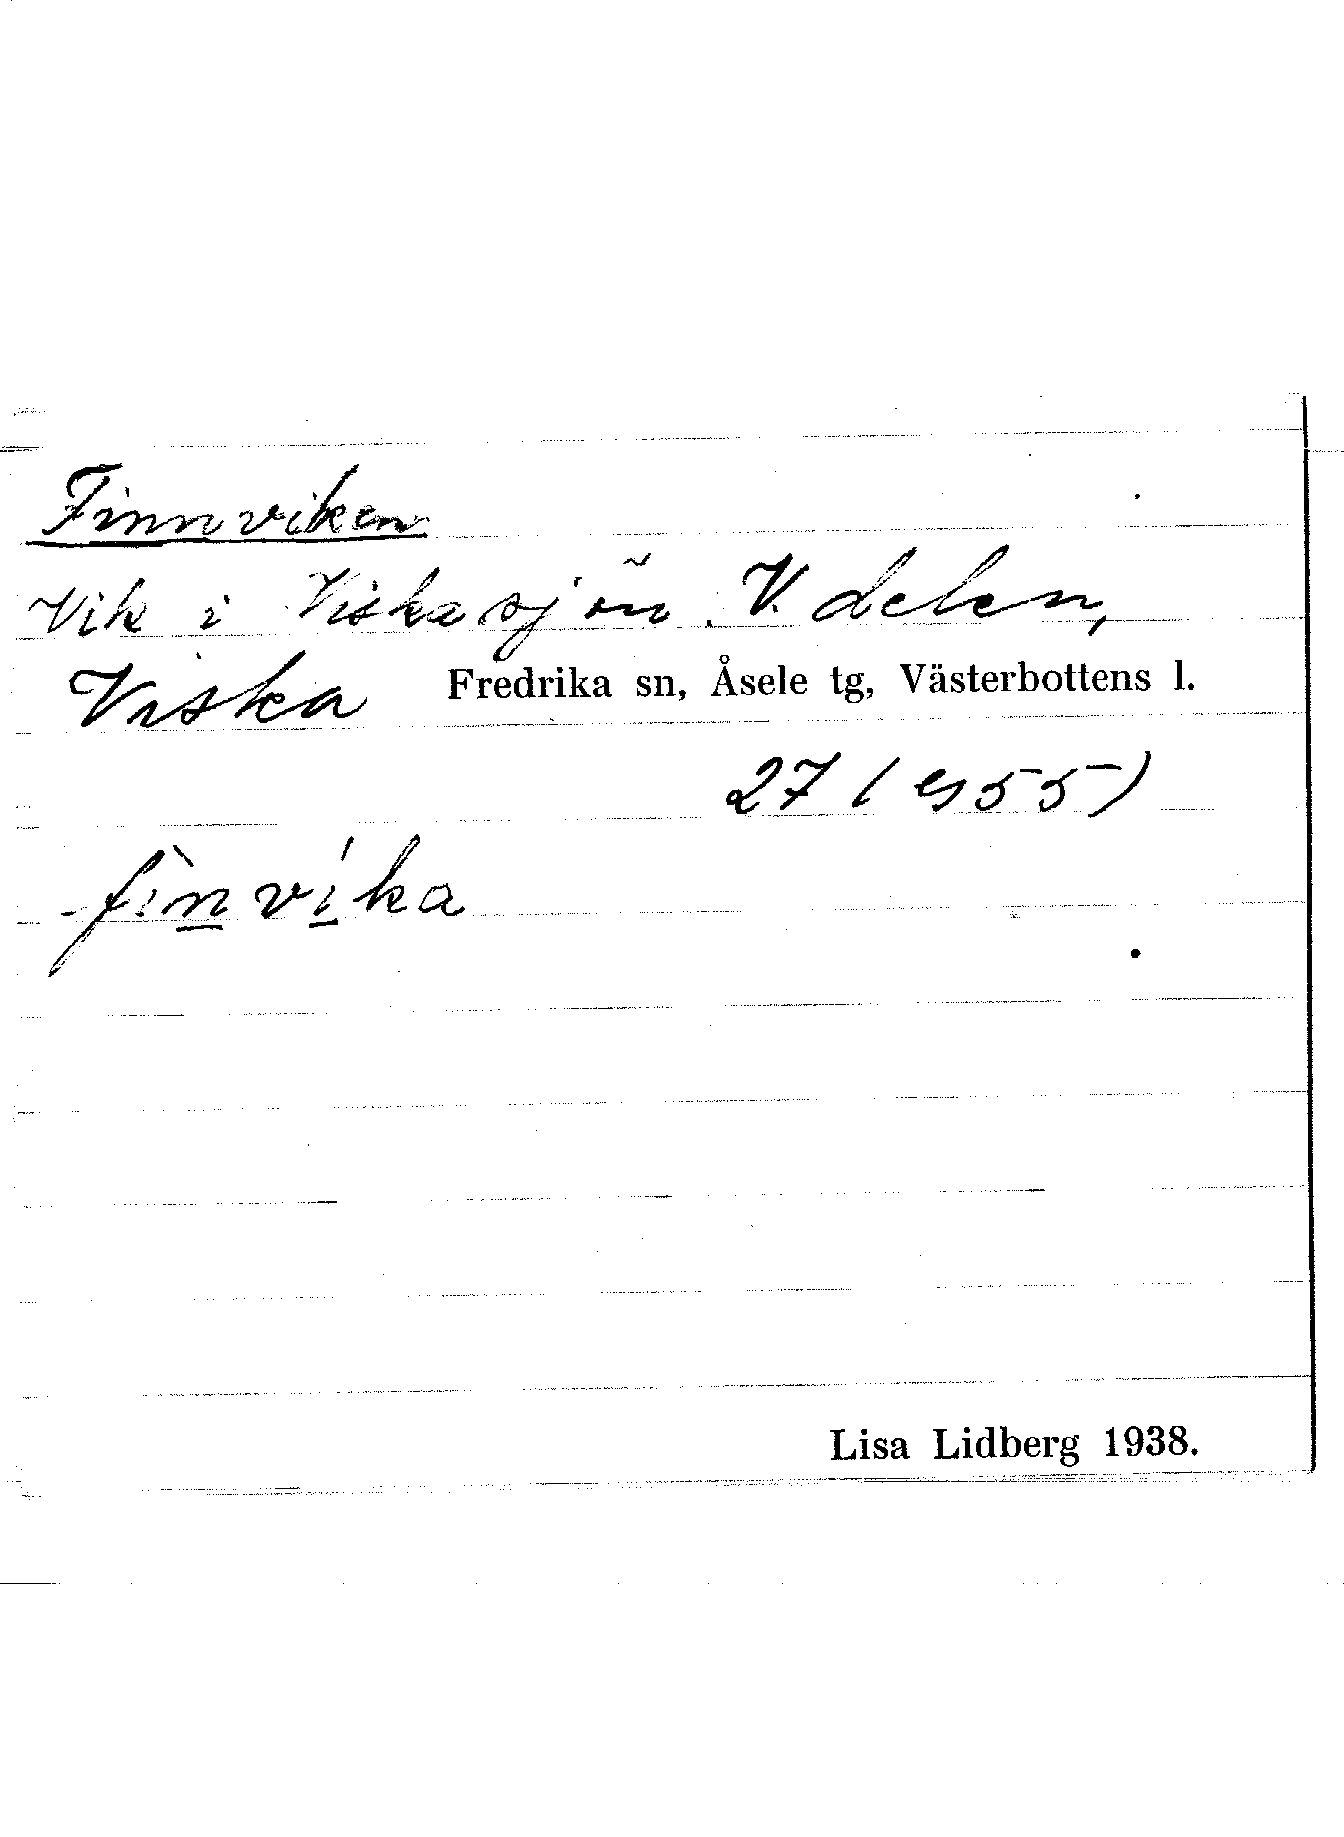 Finnviken
Vik i Viskasjön. V. delen,
Viska Fredrika sn, Åsele tg, Västerbottens l.
27 ( 55)
fìnvíka
Lisa Lidberg 1938.